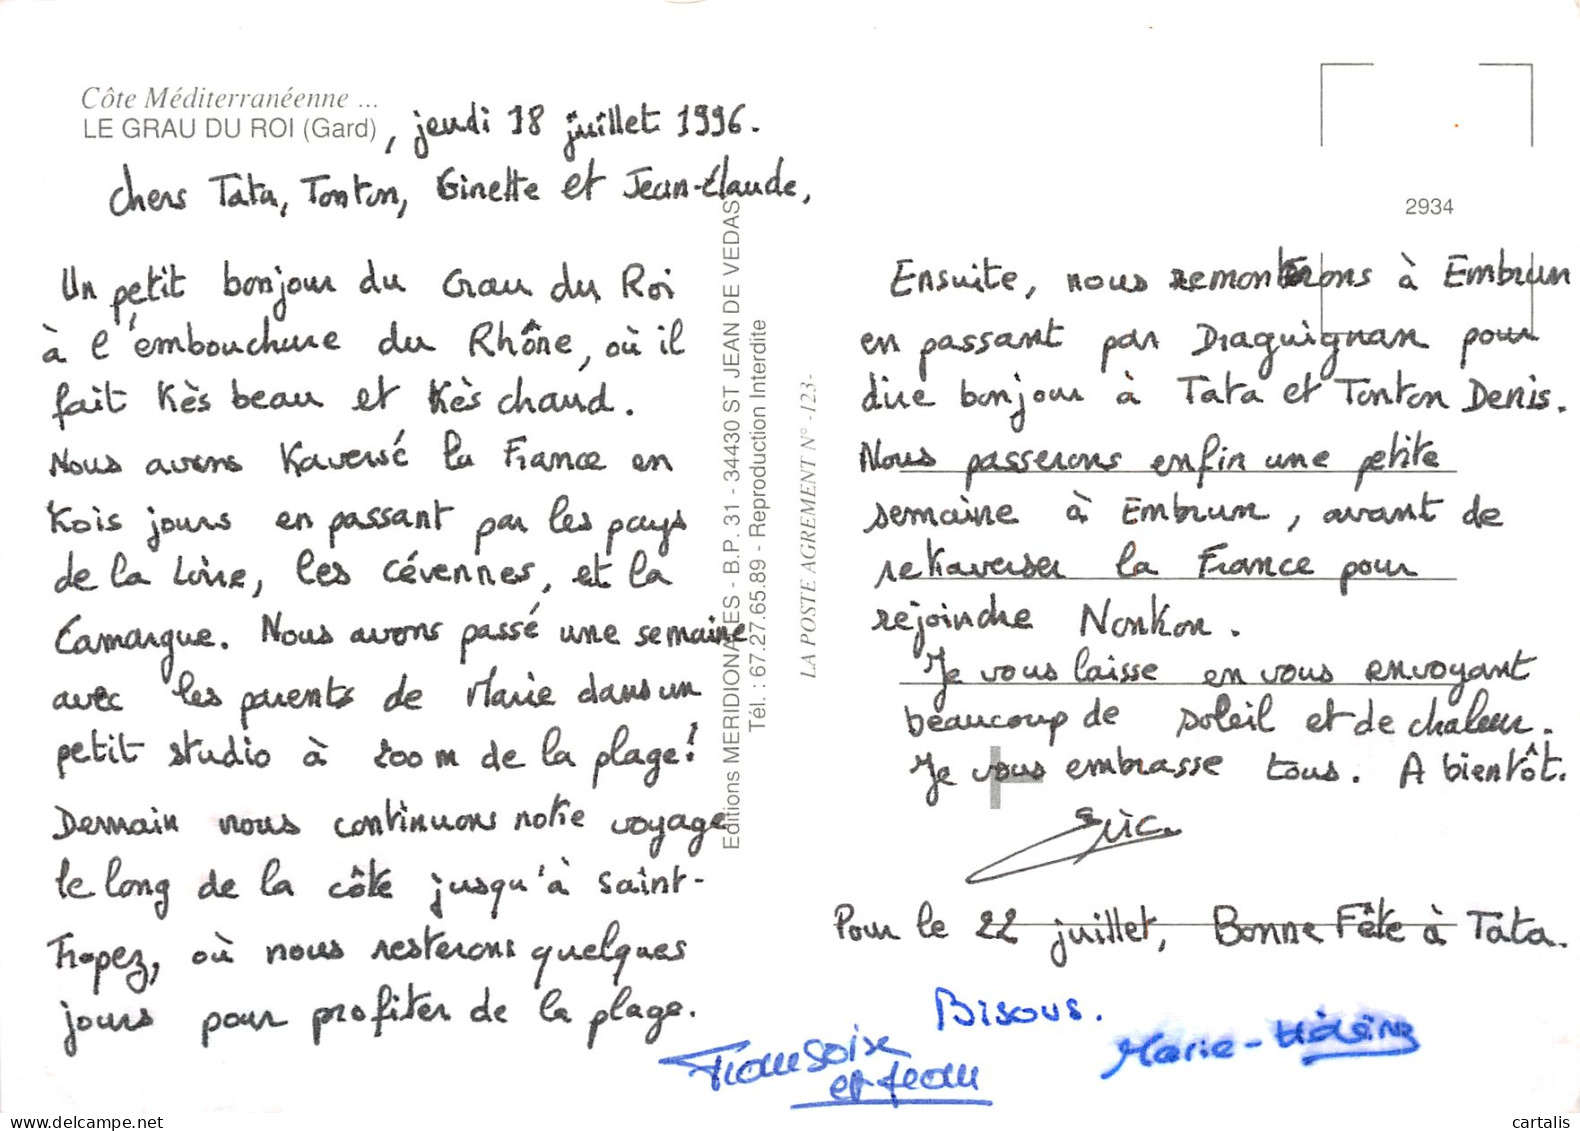 Côte Méditerranéenne ...
LE GRAU DU ROI (Gard)
, jeudi 18 juillet 1996.
chers Tata, Tonton, Ginette et Jean-Claude,
Un petit bonjour du Grau du Roi
à l'embouchure du Rhône, où il
fait très beau et très chaud.
Nous avons traversé la France en
trois jours en passant par les pays
de la Loire, les cévennes, et la
Camargue. Nous avons passé une semaine
avec les parents de Marie dans un
petit studio à 200 m de la plage!
Demain nous continuons notre voyage
le long de la côte jusqu'à saint-
Tropez, où nous resterons quelques
jours pour profiter de la plage.
Editions MERIDIONALES - B.P. 31 - 34430 ST JEAN DE VEDAS
Tél. : 67.27.65.89 - Reproduction Interdite
LA POSTE AGREMENT N° -123-
2934
Ensuite, nous remonterons à Embrun
en passant par Draguignan pour
dire bonjour à Tata et Tonton Denis.
Nous passerons enfin une petite
semaine à Embrun, avant de
retraverser la France pour
rejoindre Nontron.
Je vous laisse en vous envoyant
beaucoup de soleil et de chaleur.
Je vous embrasse tous. A bientôt.
Eric
Pour le 22 juillet, Bonne Fête à Tata.
Bisous.
Françoise
et Jean
Marie-
cartalis
cartalis.com